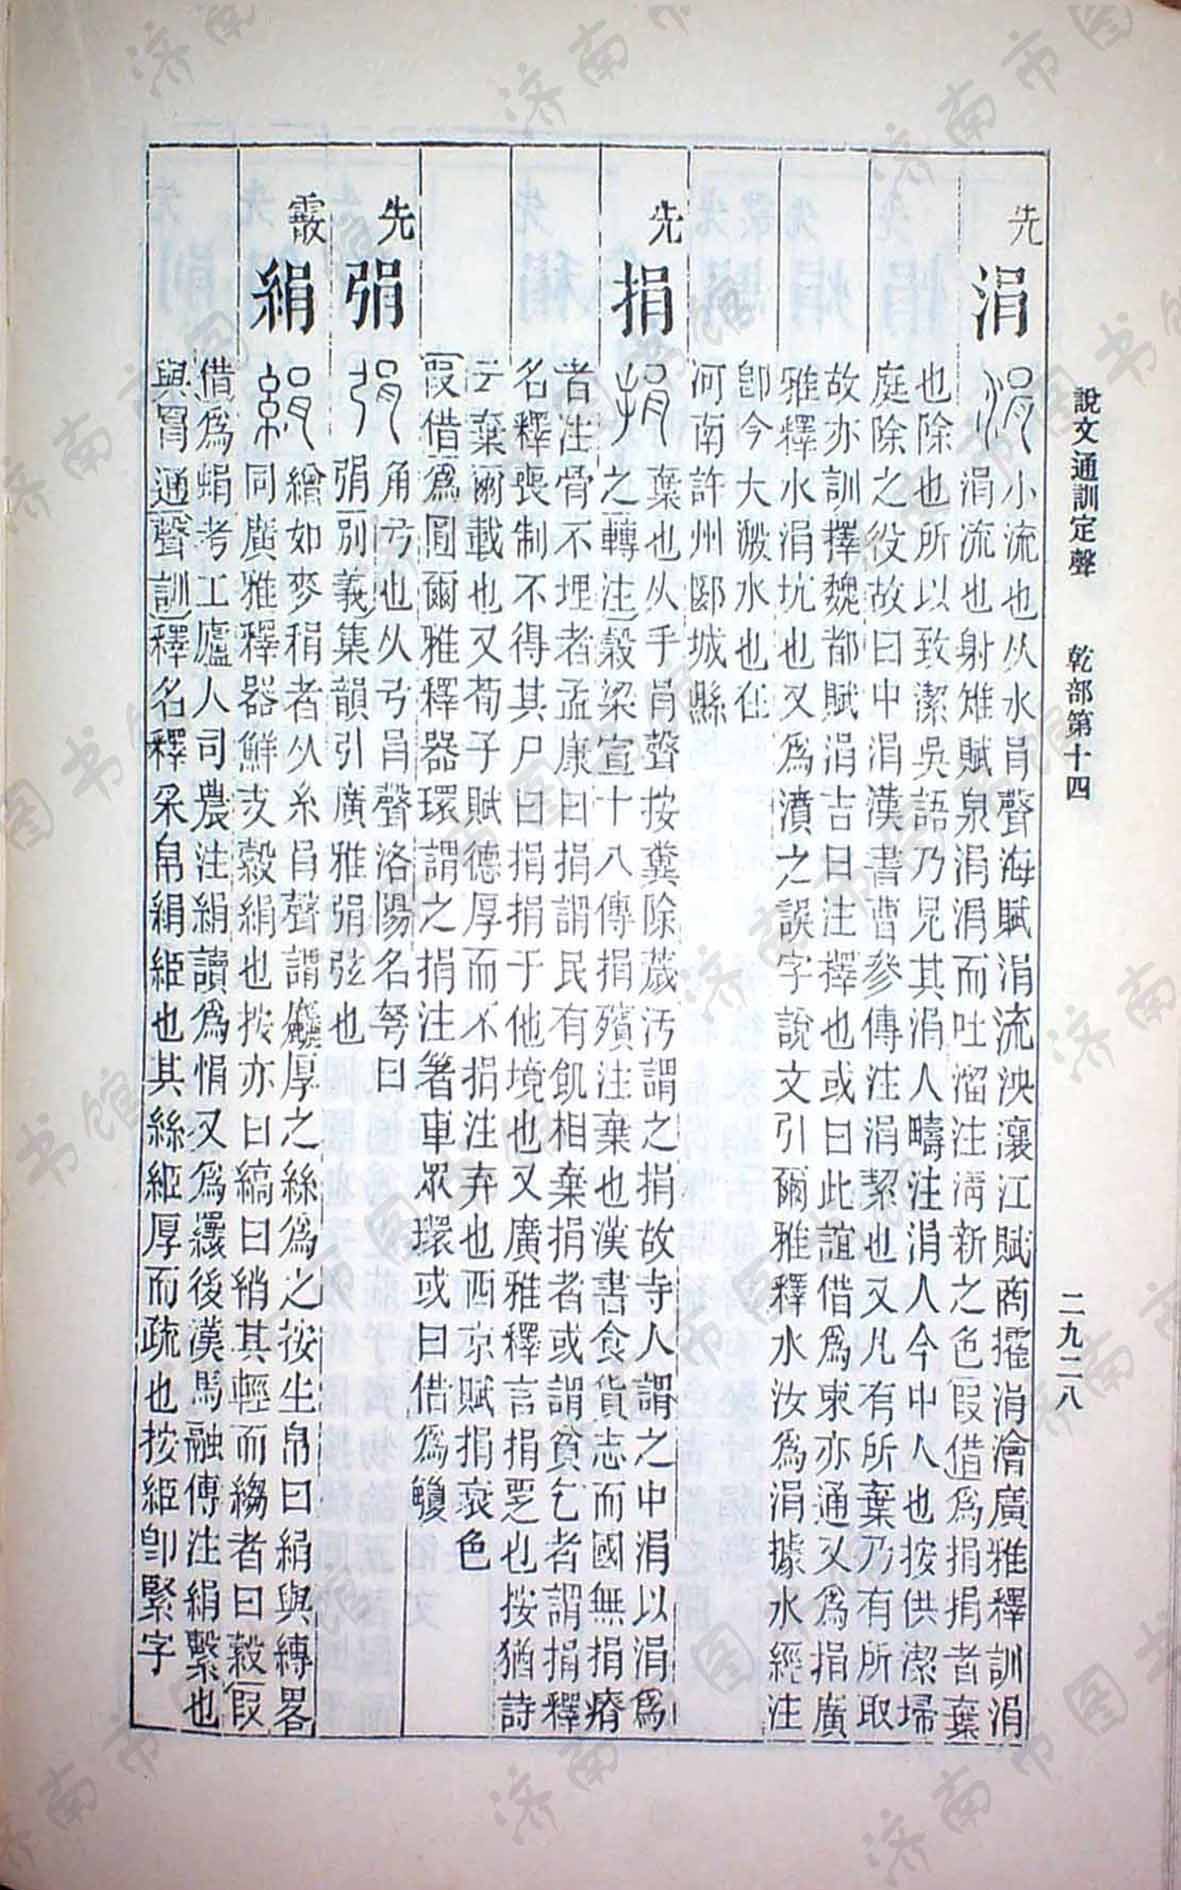 說文通訓定聲 乾部第十四 二九二八
先 涓
小流也从水肙聲海賦涓流泱瀼江賦商搉涓澮廣雅釋訓涓
涓流也射雉賦泉涓涓而吐溜注淸新之色叚借爲捐捐者棄
也除也所以致潔吳語乃見其涓人疇注涓人今中人也按供潔埽
庭除之役故曰中涓漢書曹參傳注涓絜也又凡有所棄乃有所取
故亦訓擇魏都賦涓吉日注擇也或曰此誼借爲柬亦通又爲捐廣
雅釋水涓坑也又爲濆之誤字說文引爾雅釋水汝爲涓據水經注
卽今大㶏水也在
河南許州郾城縣
先 捐
棄也从手肙聲按糞除薉汚謂之捐故寺人謂之中涓以涓爲
之轉注穀梁宣十八傳捐殯注棄也漢書食貨志而國無捐瘠
者注骨不埋者孟康曰捐謂民有飢相棄捐者或謂貧乞者謂捐釋
名釋喪制不得其尸曰捐捐于他境也又廣雅釋言捐㢴也按猶詩
云棄爾載也又荀子賦德厚而不捐注弃也西京賦捐衰色
叚借爲圓爾雅釋器環謂之捐注著車眾環或曰借爲䡓
先 弲
角弓也从弓肙聲洛陽名弩曰
弲別義集韻引廣雅弲弦也
霰 絹
繒如麥稍者从糸肙聲謂麤厚之絲爲之按生帛曰絹與縳畧
同廣雅釋器鮮支縠絹也按亦曰縞曰綃其輕而縐者曰縠叚
借爲蜎考工廬人司農注絹讀爲悁又爲繯後漢馬融傳注絹繫也
與罥通聲訓釋名釋采帛絹䋫也其絲䋫厚而疏也按䋫卽緊字